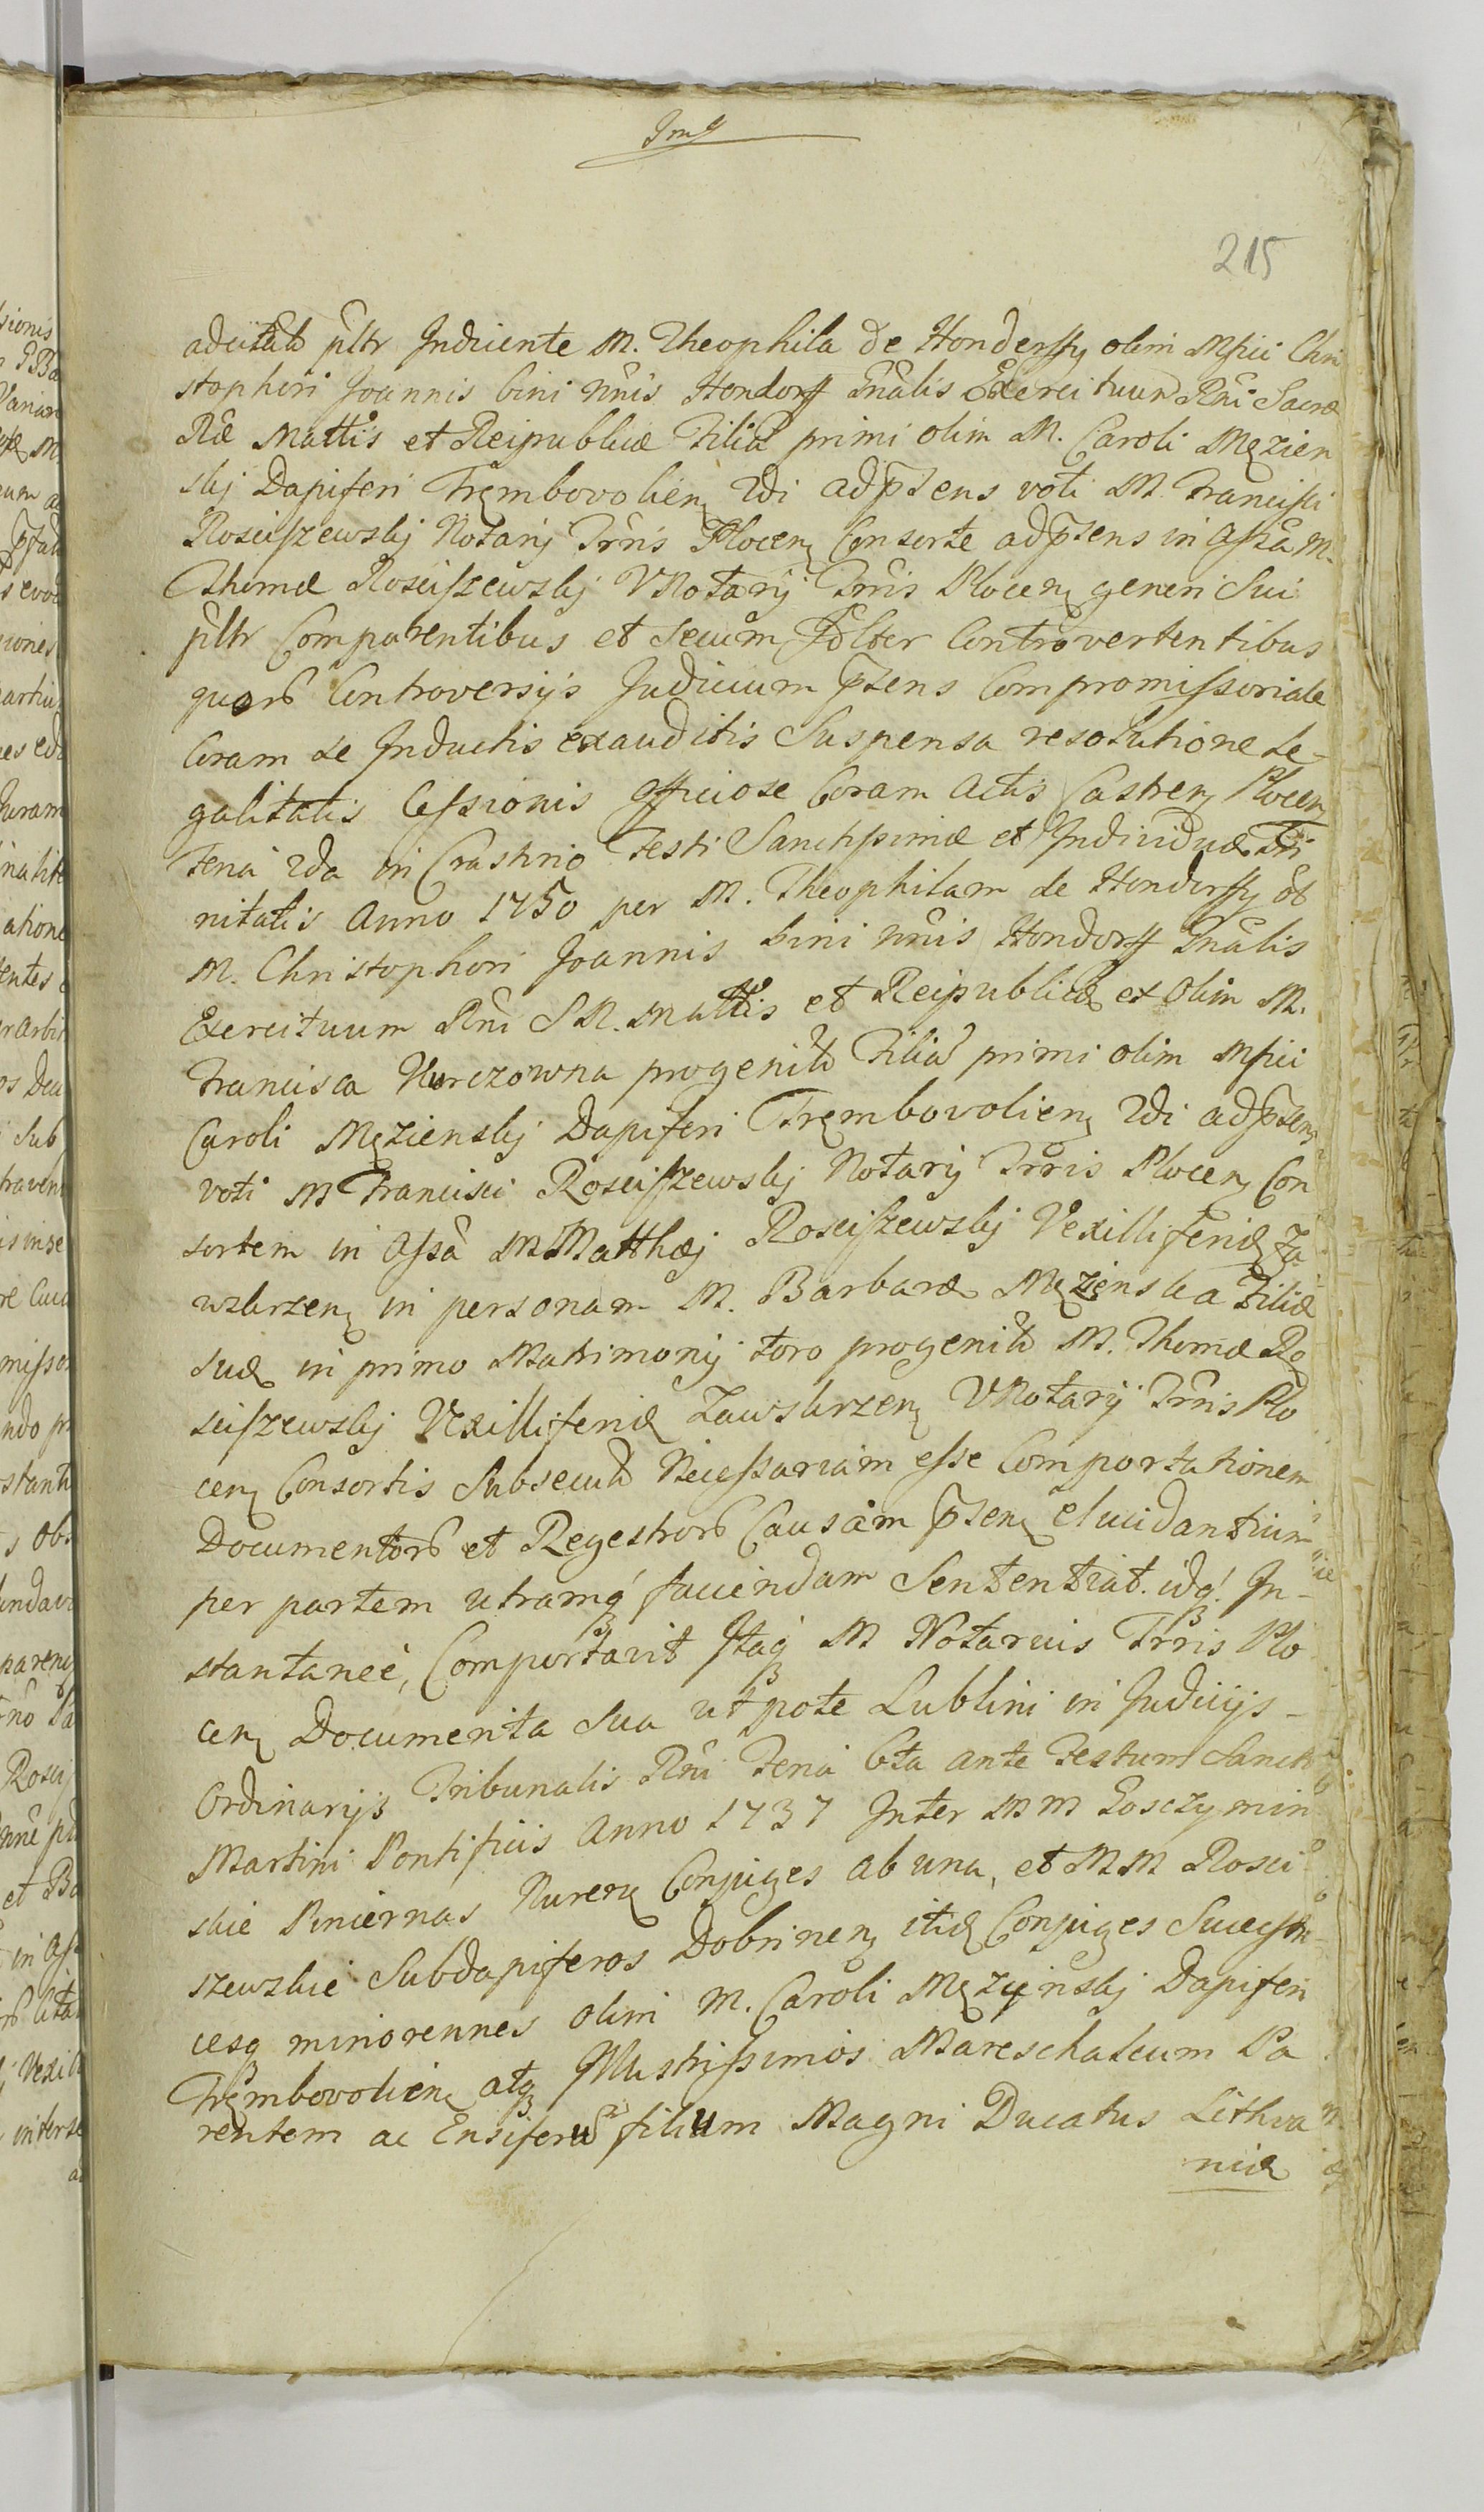 215
adcitatâ pltr Inducente M. Theophila de Hondorffy olim Mfici Chri
stophori Joannis bini nnis Hondorff Gnalis Exercituum Rni Sacræ
Ræ Mattis et Reipublicæ Filia primi olim M. Caroli Męzien
skj Dapiferi Trembovolien 2di ad psens voti M. Francisci
Rosciszewskj Notarij Trris Plocen Consorte ad psens in assa M.
Thomæ Rosciszewskj VNotarij Trris Plocen generi Sui
pltr Comparentibus et Secum Controvertentibus
quorb Controversijs Judicium psens Compromissoriale
Coram se Inductis exauditis Suspensa resolutione Le-
galitatis Cessionis officiose Coram Actis Castren Plocen
Feria 2da in Crastino Festi Sanctissimæ et Individuæ Tri
nitatis Anno 1750 per M. Theophilam de Hondorffy ol
M. Christophori Joannis bini nnis Hondorff Gnalis
Exercituum Rni S R. Mattis et Reipublicæ ex olim M.
Francisca Kurczowna progenita Filia primi olim Mfici
Caroli Męzienskj Dapiferi Trembovolien 2di ad psens
voti M Francisci Rosciszewskj Notarij Trris Plocen Con
sortem in Assa M Matthæj Rosciszewskj Vexilliferidæ Za
wskrzen in personam M. Barbaræ Męzienska Filiæ
suæ in primo Matrimonij toro progenita M. Thomæ Ro
sciszewskj Vexilliferidæ Zawskrzen VNotarij Trris Plo
cen Consortis Subsecuta Necessariam esse Comportationem
Documentorb et Regestrorb Causam psen elucidantium
per partem utramq faciendam Sententiat. idq In-
stantanee, Comportavit Itaq M Notarius Trris Plo
cen Documenta Sua utpote Lublini in Judicijs
Ordinarijs Tribunalis Rni Feria 6ta ante Festum Sancti
Martini Pontificis Anno 1737 Inter MM Gosczymin
skie Pincernas Nuren Conjuges ab una, et MM Rosci
szewskie Subdapiferos Dobrinen itidē Conjuges Successo
resq minorennes olim M. Caroli Męzynskj Dapiferi
Trembovolien atq Illustrissimos Mareschalcum Pa
rentem ac Ensiferum filium Magni Ducatus Lithva
niæ